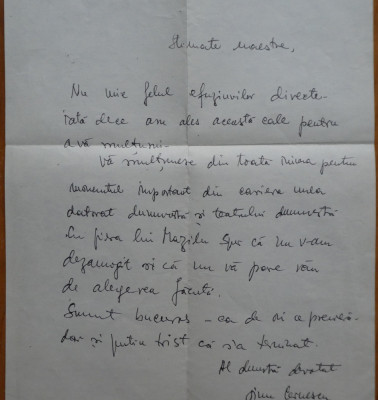 Stimate maestre,
Nu mie felul efuziunilor directe.
iată deci am ales această cale pentru
a vă mulțumi.
Vă mulțumesc din toată inima pentru
momentul important din cariera mea
datorat dumneavoastră și teatrului
lui Mazilu sper că nu v-am
dezamăgit și că nu vă pare rău
de alegerea făcută.
Sunt bucuros – ca de o premieră
dar și puțin trist că s-a terminat.
Al devotat